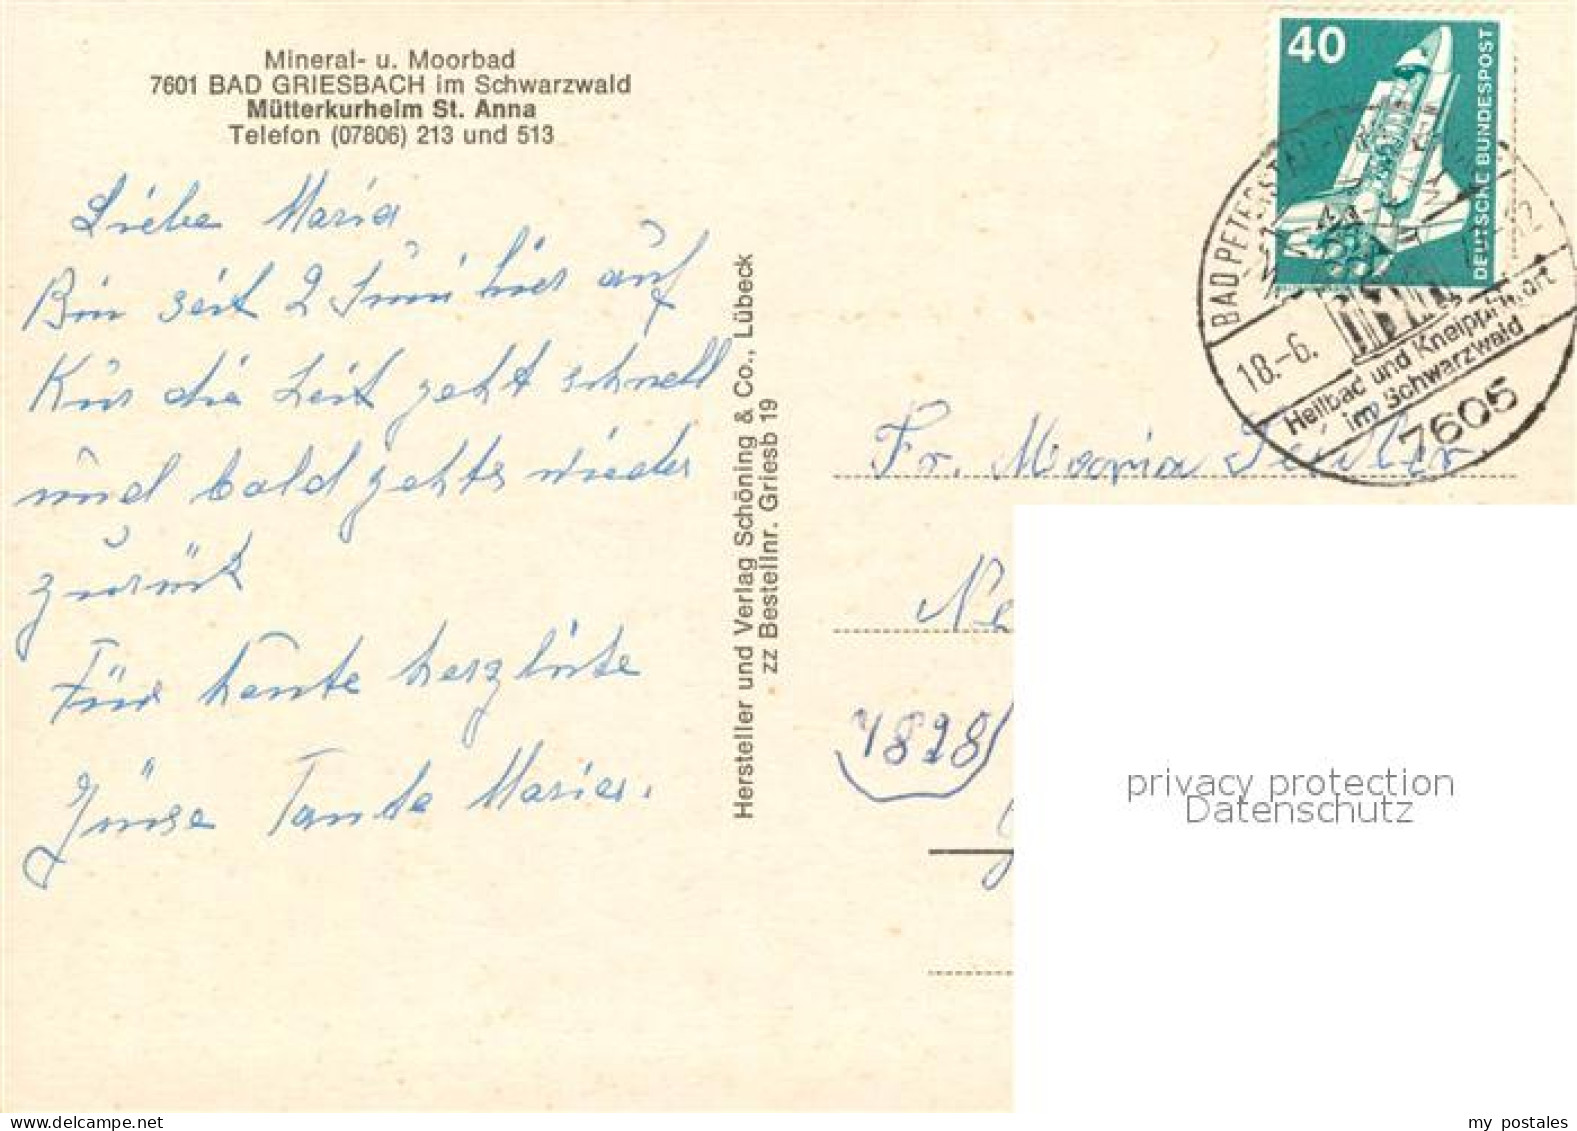 Mineral- u. Moorbad
7601 BAD GRIESBACH im Schwarzwald
Mütterkurheim St. Anna
Telefon (07806) 213 und 513
Liebe Maria
Bin seit 2 Juni hier auf
Kur die Zeit geht schnell
und bald gehts wieder
zurück
Für heute herzliche
Grüsse Tante Maria.
Hersteller und Verlag Schöning & Co., Lübeck
zz Bestellnr. Griesb 19
40
DEUTSCHE BUNDESPOST
BAD PETERSTAL-
18.-6.
Heilbad und Kneippkurort
im Schwarzwald
7605
Fr. Maria
Ne
7828
privacy protection
Datenschutz
my postales
www.ansichtskartenversand.com